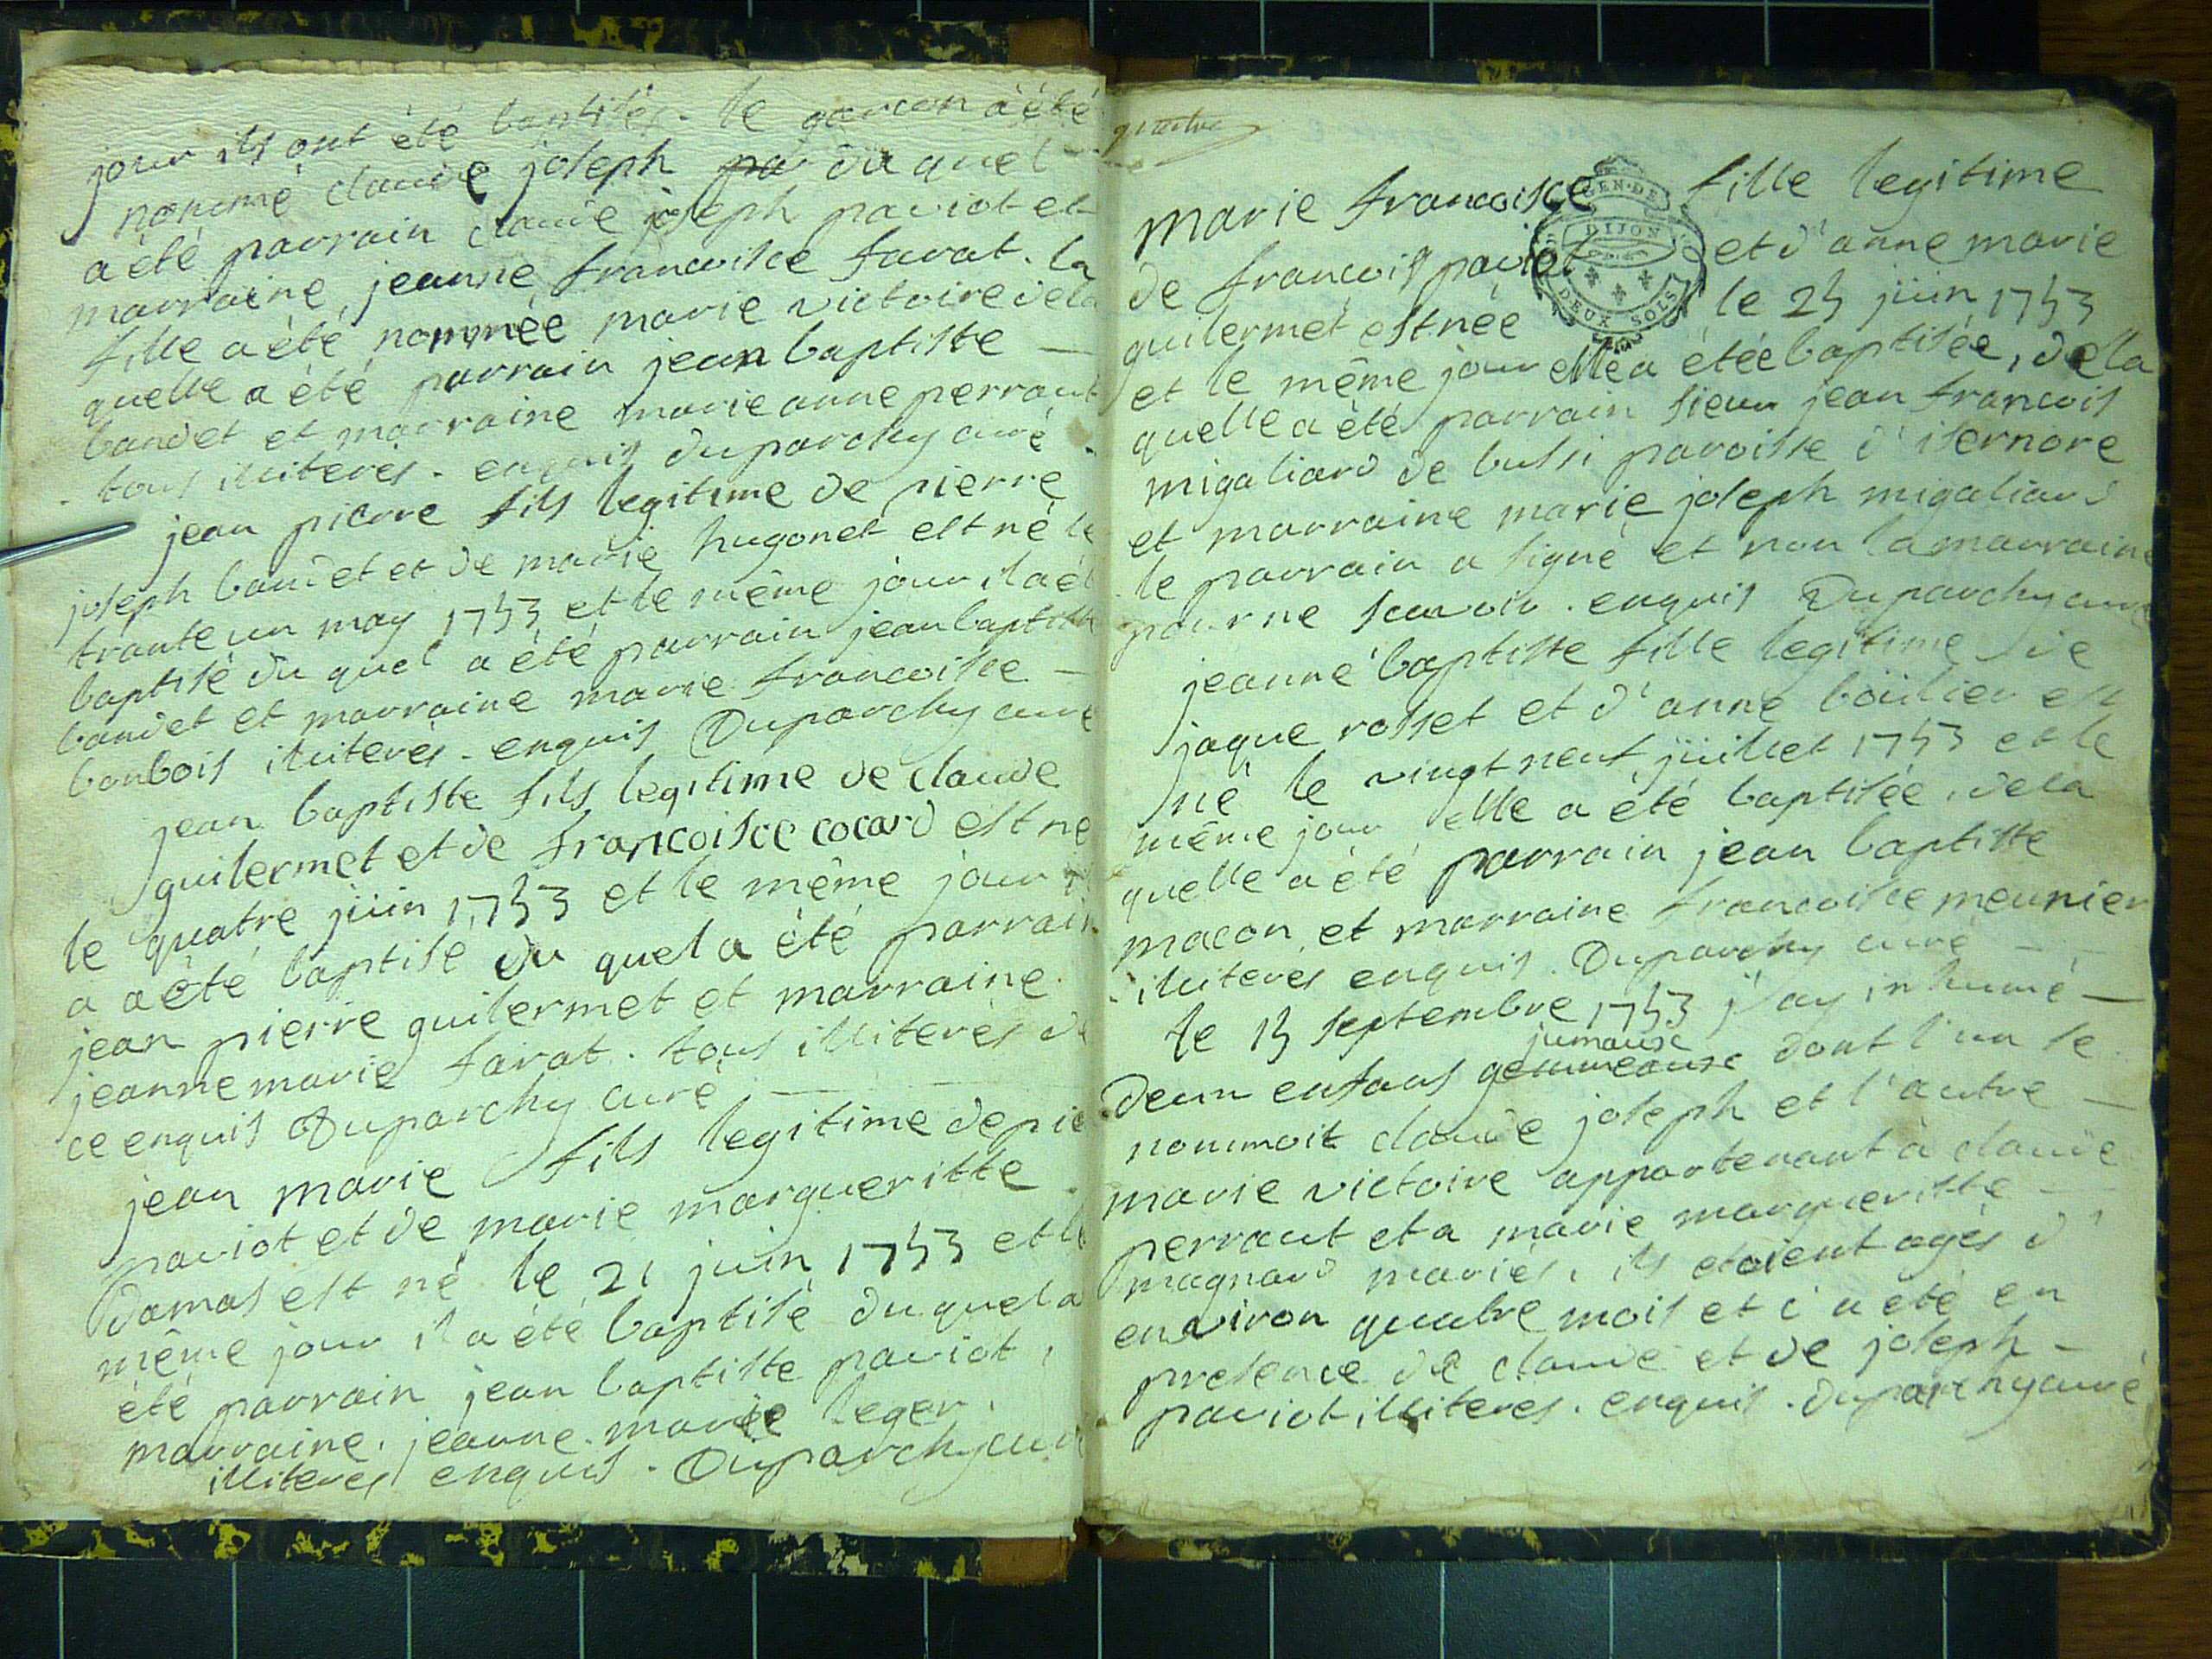 jour ils ont été baptisés. le garcon a été
nommé claude joseph pa du quel
a été parrain claude joseph paviot et
marraine jeanne francoisce favat. la
fille a été nommée marie victoire de la
quelle a été parrain jean baptiste
baudet et marraine marie anne perraut
tous illiterés. enquis duparchy curé
jean pierre fils legitime de pierre
joseph baudet et de marie hugonet est né le
trante un may 1753 et le même jour il a ét
baptisé du quel a été parrain jean baptiste
baudet et marraine marie francoisce
bonbois illiterés. enquis Duparchy curé
jean baptiste fils legitime de claude
guilermet et de francoisce cocard est né
le quatre juin 1753 et le même jour il
a a été baptisé du quel a été parrain
jean pierre guilermet et marraine
jeanne marie favat. tous illiterés de
ce enquis Duparchy curé
jean marie fils legitime de pie
paviot et de marie margueritte
Damas est né le 21 juin 1753 et le
même jour il a été baptisé du quel a
été parrain jean baptiste paviot,
marraine. jeanne marie leger.
illiterés enquis. Duparchy curé
quatre
GEN·DE
DIJON
DEUX SOLS
marie francoisce fille legitime
de francois paviot et d'anne marie
guilermet est née le 25 juin 1753
et le même jour elle a étée baptisée, de la
quelle a été parrain sieur jean francois
migaliard de bussi paroisse d'isernore
et marraine marie joseph migaliard
le parrain a signé et non la marraine
pour ne scavoir. enquis Duparchy curé
jeanne baptiste fille legitime de
jaque rosset et d'anne boüilier est
né le vingt neuf juillet 1753 et le
même jour elle a été baptisée. de la
quelle a été parrain jean baptiste
macon et marraine francoisce meunier
illiterés enquis. Duparchy curé
le 15 septembre 1753 j'ay inhumé
jumause
deux enfans gemmeause dont l'un se
nommoit claude joseph et l'autre
marie victoire appartenant à claude
perraut et a marie margueritte
magnard mariés, ils etoient agés d'
environ quatre mois et c'a été en
presence de claude et de joseph
paviot illiterés. enquis. duparchy curé